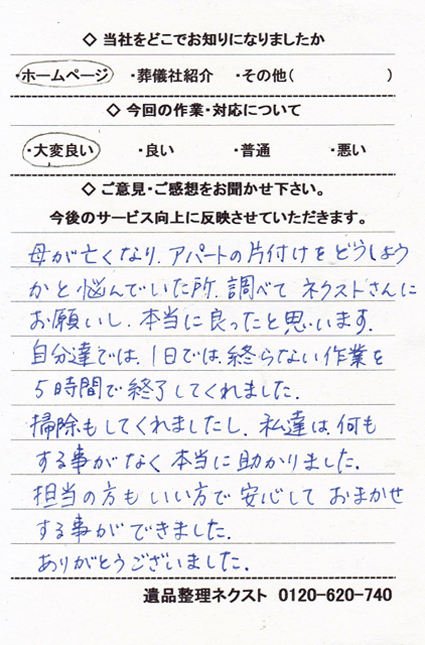 ◇ 当社をどこでお知りになりましたか
・ホームページ ・葬儀社紹介 ・その他( )
◇ 今回の作業・対応について
・大変良い ・良い ・普通 ・悪い
◇ ご意見・ご感想をお聞かせ下さい。
今後のサービス向上に反映させていただきます。
母が亡くなり、アパートの片付けをどうしよう
かと悩んでいた所、調べて ネクストさんに
お願いし、本当に良ったと思います。
自分達では、1日では終らない作業を
5時間で終了してくれました。
掃除もしてくれましたし、私達は何も
する事がなく本当に助かりました。
担当の方も いい方で 安心して おまかせ
する事ができました。
ありがとうございました。
遺品整理ネクスト 0120-620-740